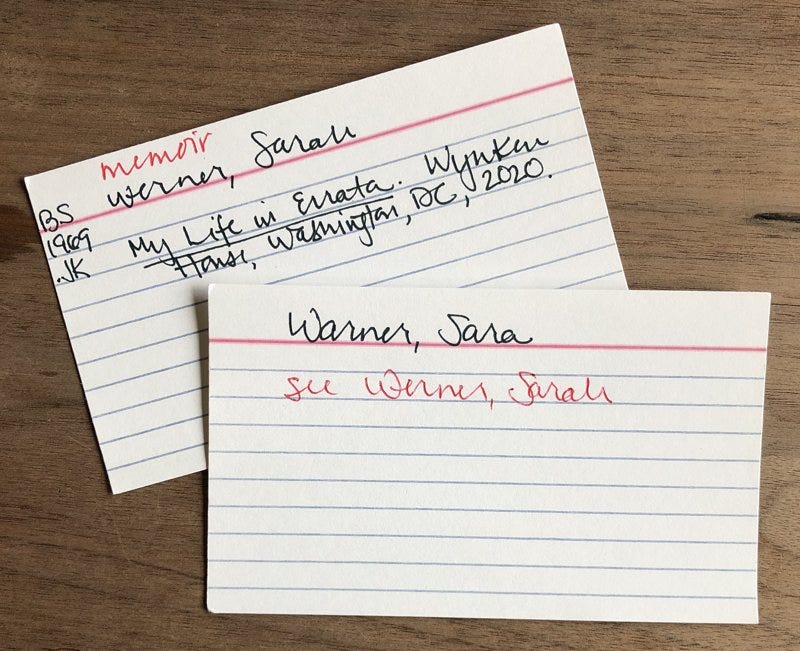 memoir
Werner, Sarah
BS
1969
.JK
My Life in Errata. Wynken
House, Washington, DC, 2020.
Warner, Sara
see Werner, Sarah